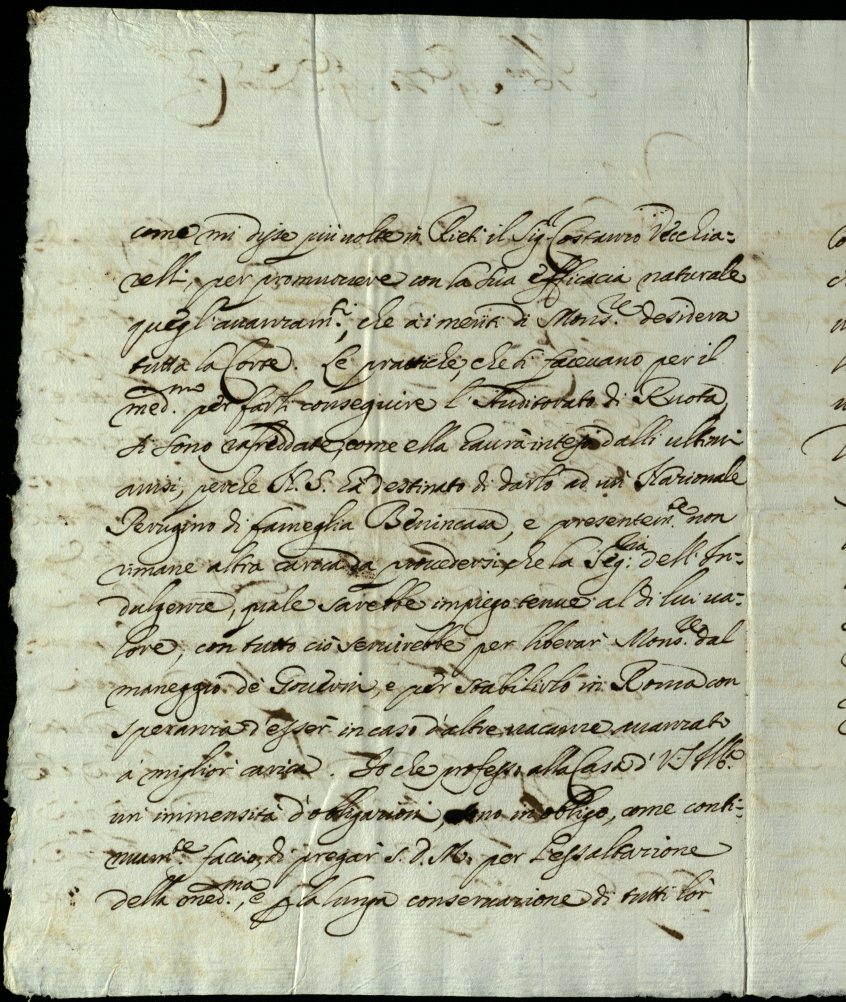 come mi disse più volte in Rieti il Sig.r Costanzo Vecchia=
relli, per promuovere con la sua efficacia naturale
quegl'avanzam.ti, che a i meriti di Mons.re desidera
tutta la Corte. Le prattiche, che si facevano per il
med.mo per farli conseguire l'Auditorato di Ruota,
si sono raffreddate, come ella haurà inteso dalli ultimi
avvisi, perche N. S. ha destinato di darlo ad un Nazionale
Perugino di fameglia Benincasa, e presentem.te non
rimane altra carica da provedersi, che la Seg.ria dell'In=
dulgenze, quale sarebbe impiego tenue al di lui va=
lore, con tutto ciò servirebbe per liberar Mons.re dal
maneggio de Governi, e per stabilirlo in Roma con
speranza d'esser in caso d'altre vacanze avanzato
a miglior carica. Io che professo alla Casa d' V.S. Ill.ma
un immensità d'obligazioni, sono in obligo, come conti=
nuam.te faccio, di pregar S. D. M. per l'essaltazione
della med.ma, e p la lunga conservazione di tutti lor